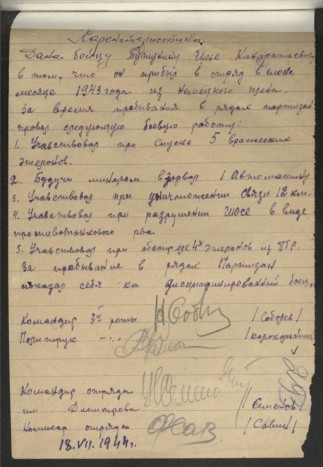 Характеристика.
Дана бойцу Илье
в том, что он прибыл в отряд в июне
месяце 1943 года из немецкого плена.
За время пребывания в рядах партизан
провел следующую боевую работу:
1. Учавствовал при спуске 5 вражеских
эшелонов.
2. Будучи минером взорвал 1 Автомашину
3. Учавствовал при уничтожении связи 12 км.
4. Учавствовал при разрушении шосе в виде
противотанкового рва.
5. Учавствовал при обстреле 4х эшелонов из ПТР.
За пребывание в рядах Партизан
показал себя ка дисциплинированный боец.
Командир 3й роты /Соболев/
Политрук -"-
Командир отряда
им Димитрова /Семенов/
Комисар отряда /Савин/
18.VII.1944г.